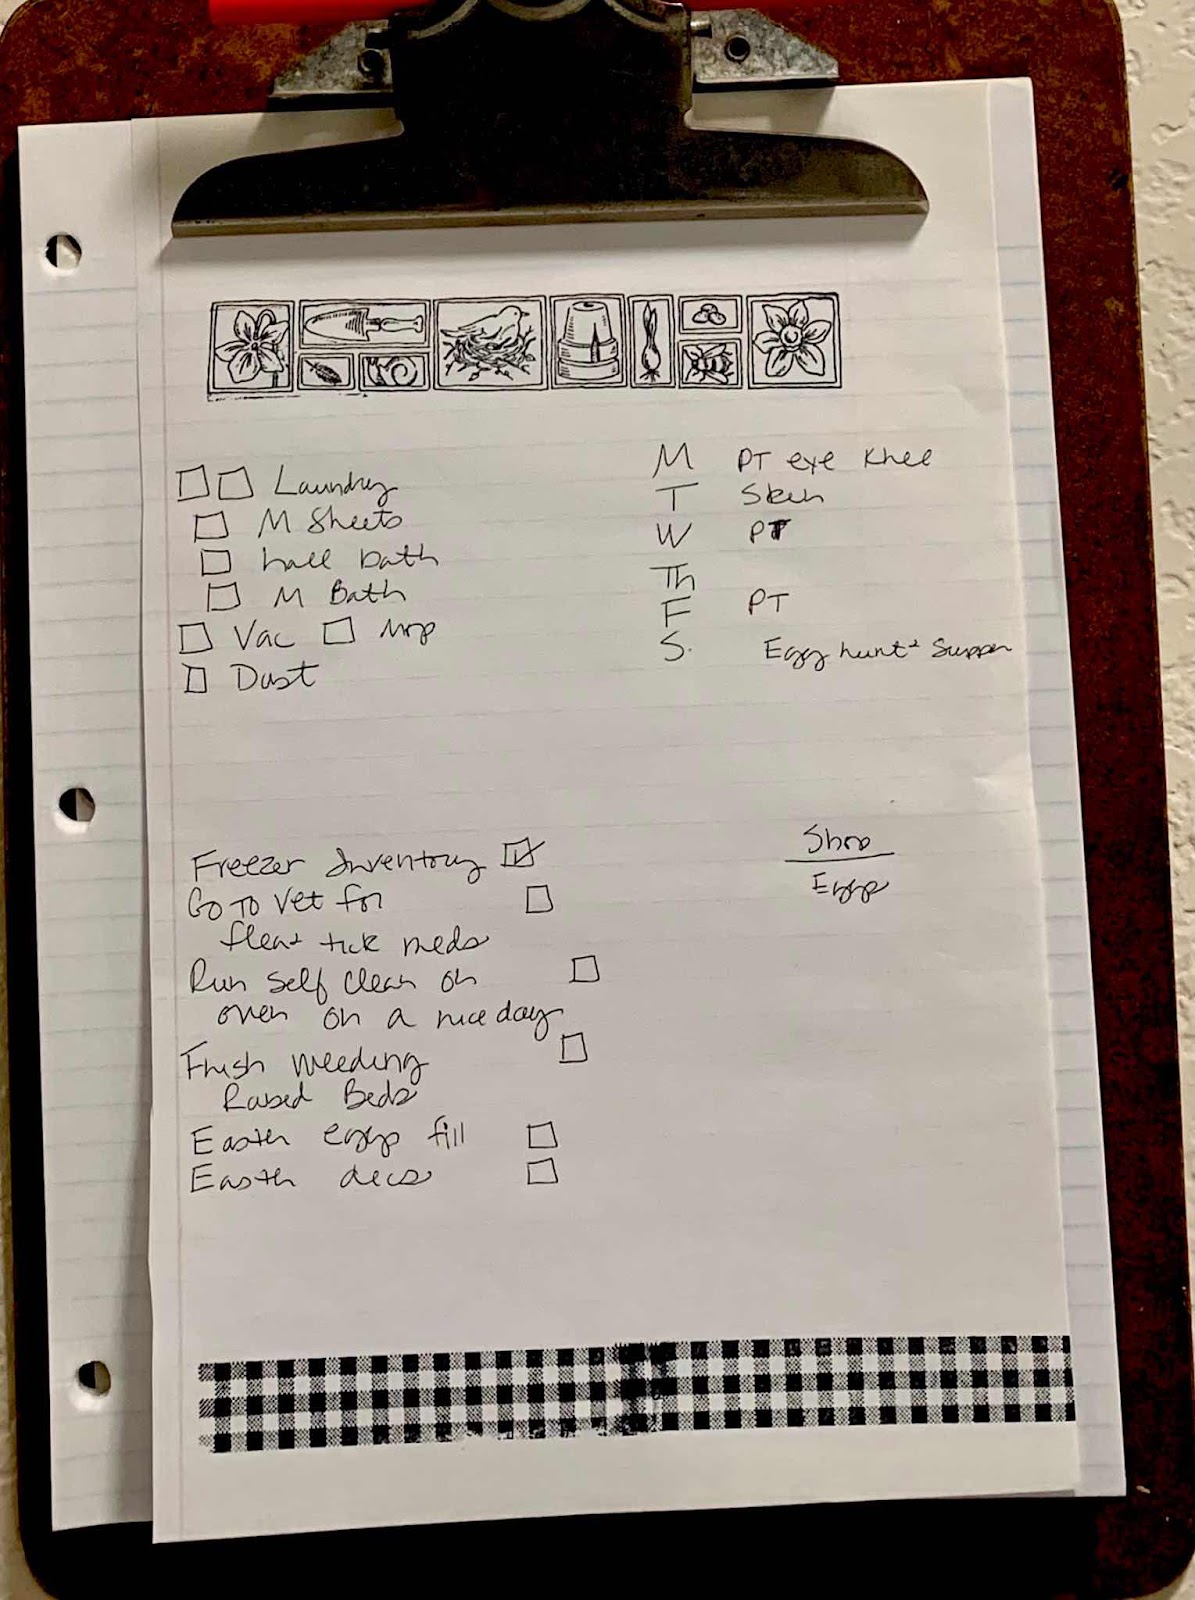 Laundry
M Sheets
hall bath
M Bath
Vac Mop
Dust
M PT eye Knee
T Skin
W PT
Th
F PT
S. Egg hunt + Supper
Freezer Inventory
Go to Vet for
flea + tick meds
Run self clean on
oven on a nice day
Finish weeding
Raised Beds
Easter eggs fill
Easter decs
Shop
Eggs